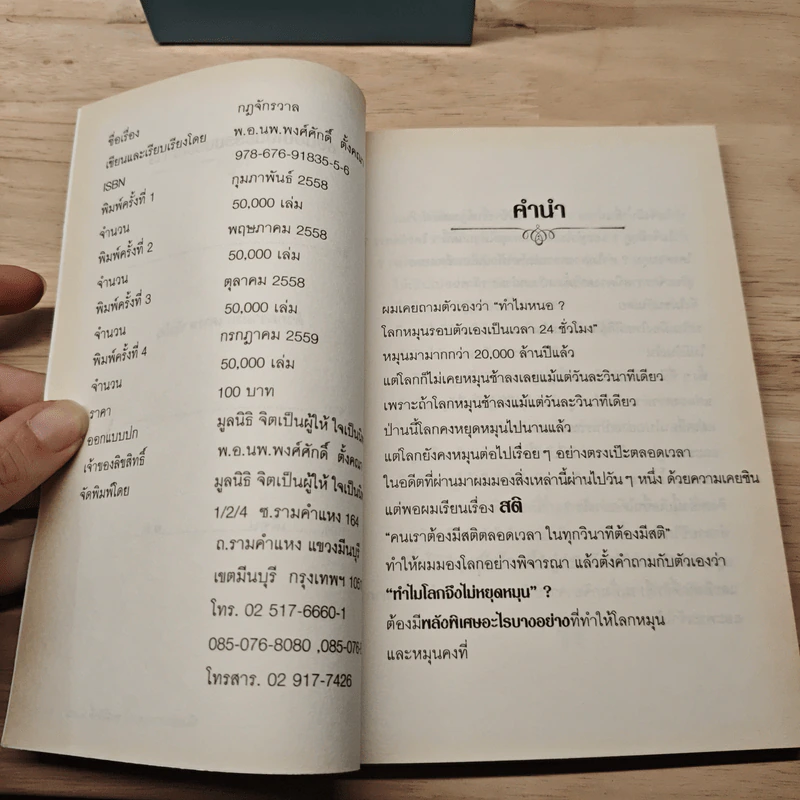 ชื่อเรื่อง กฎจักรวาล
เขียนและเรียบเรียงโดย พ.อ.นพ.พงศ์ศักดิ์ ตั้งคณา
ISBN 978-676-91835-5-6
พิมพ์ครั้งที่ 1 กุมภาพันธ์ 2558
จำนวน 50,000 เล่ม
พิมพ์ครั้งที่ 2 พฤษภาคม 2558
จำนวน 50,000 เล่ม
พิมพ์ครั้งที่ 3 ตุลาคม 2558
จำนวน 50,000 เล่ม
พิมพ์ครั้งที่ 4 กรกฎาคม 2559
จำนวน 50,000 เล่ม
ราคา 100 บาท
ออกแบบปก มูลนิธิ จิตเป็นผู้ให้ ใจเป็น
เจ้าของลิขสิทธิ์ พ.อ.นพ.พงศ์ศักดิ์ ตั้งคณา
จัดพิมพ์โดย มูลนิธิ จิตเป็นผู้ให้ ใจเป็น
1/2/4 ซ.รามคำแหง 164
ถ.รามคำแหง แขวงมีนบุรี
เขตมีนบุรี กรุงเทพฯ 1051
โทร. 02 517-6660-1
085-076-8080 ,085-076-
โทรสาร. 02 917-7426
คำนำ
ผมเคยถามตัวเองว่า “ทำไมหนอ ?
โลกหมุนรอบตัวเองเป็นเวลา 24 ชั่วโมง”
หมุนมามากกว่า 20,000 ล้านปีแล้ว
แต่โลกก็ไม่เคยหมุนช้าลงเลยแม้แต่วันละวินาทีเดียว
เพราะถ้าโลกหมุนช้าลงแม้แต่วันละวินาทีเดียว
ป่านนี้โลกคงหยุดหมุนไปนานแล้ว
แต่โลกยังคงหมุนต่อไปเรื่อยๆ อย่างตรงเป๊ะตลอดเวลา
ในอดีตที่ผ่านมาผมมองสิ่งเหล่านี้ผ่านไปวันๆ หนึ่ง ด้วยความเคยชิน
แต่พอผมเรียนเรื่อง สติ
“คนเราต้องมีสติตลอดเวลา ในทุกวินาทีต้องมีสติ”
ทำให้ผมมองโลกอย่างพิจารณา แล้วตั้งคำถามกับตัวเองว่า
“ทำไมโลกจึงไม่หยุดหมุน” ?
ต้องมีพลังพิเศษอะไรบางอย่างที่ทำให้โลกหมุน
และหมุนคงที่